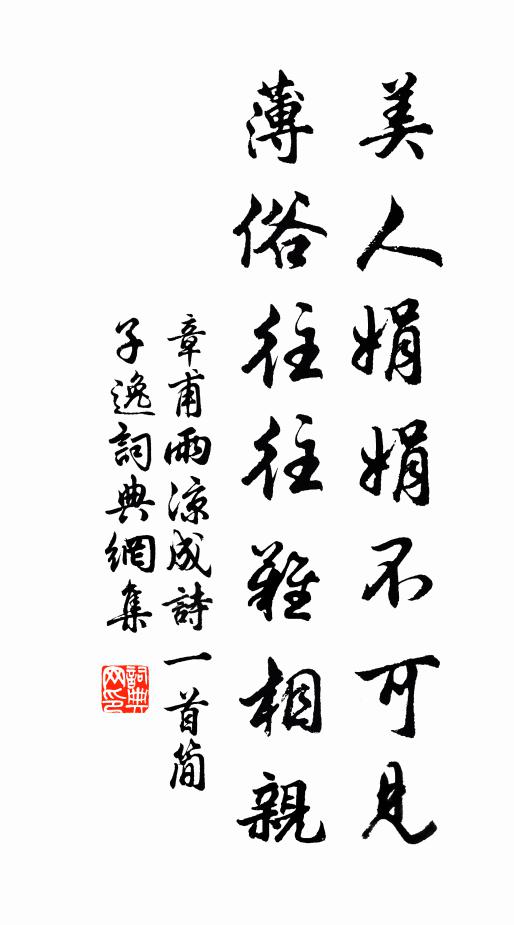 美人娟娟不可見
薄俗往往難相親
章甫雨凉成詩一首简
子逸詞典網集
詞典网印